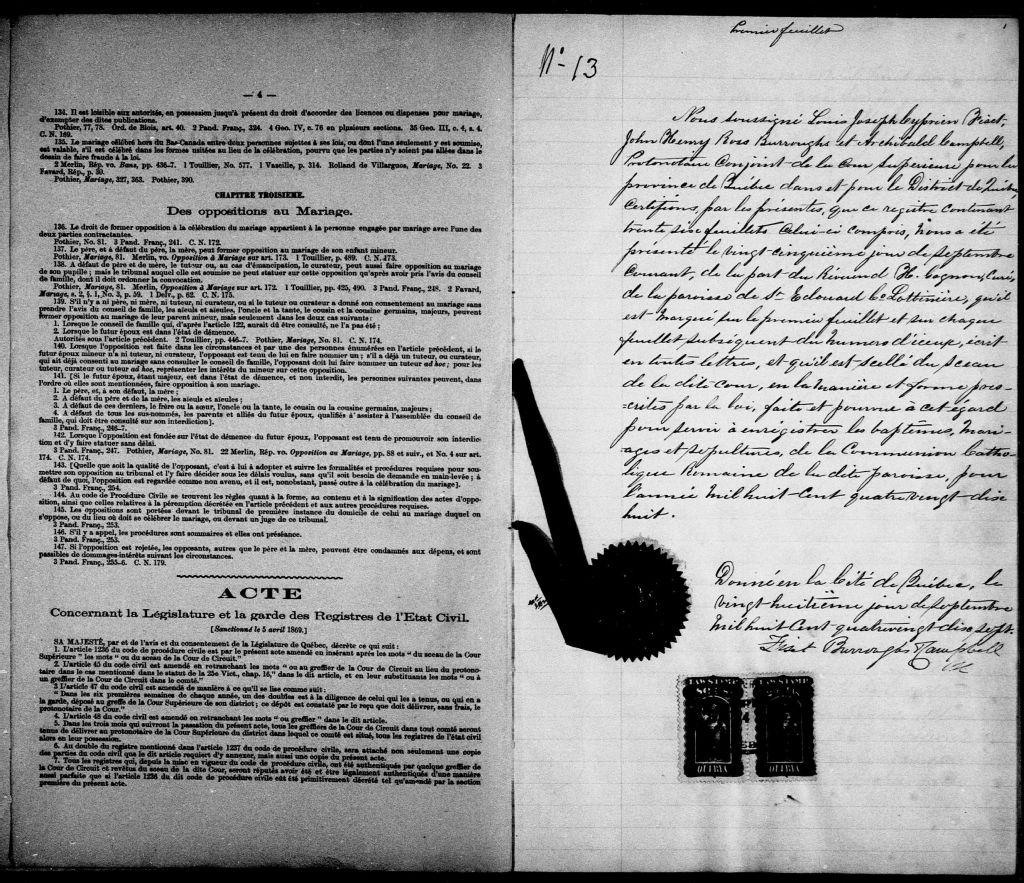 — 4 —
134. Il est loisible aux autorités, en possession jusqu'à présent du droit d'accorder des licences ou dispenses pour mariage,
d'exempter des dites publications.
Pothier, 77, 78. Ord. de Blois, art. 40. 2 Pand. Franç., 324. 4 Geo. IV, c. 76 en plusieurs sections. 35 Geo. III, c. 4, s. 4.
C. N. 169.
135. Le mariage célébré hors du Bas-Canada entre deux personnes sujettes à ses lois, ou dont l'une seulement y est soumise,
est valable, s'il est célébré dans les formes usitées au lieu de la célébration, pourvu que les parties n'y soient pas allées dans le
dessein de faire fraude à la loi.
2 Merlin, Rép. vo. Bans, pp. 436-7. 1 Touillier, No. 577. 1 Vazeille, p. 314. Rolland de Villargues, Mariage, No. 22. 3
Favard, Rép., p. 39.
Pothier, Mariage, 327, 363. Pothier, 390.
CHAPITRE TROISIEME.
Des oppositions au Mariage.
136. Le droit de former opposition à la célébration du mariage appartient à la personne engagée par mariage avec l'une des
deux parties contractantes.
Pothier, No. 81. 3 Pand. Franç., 241. C. N. 172.
137. Le père, et à défaut du père, la mère, peut former opposition au mariage de son enfant mineur.
Pothier, Mariage, 81. Merlin, vo. Opposition à Mariage sur art. 173. 1 Touillier, p. 489. C. N. 173.
138. A défaut de père et de mère, le tuteur ou, au cas d'émancipation, le curateur, peut aussi faire opposition au mariage
de son pupille; mais le tribunal auquel elle est soumise ne peut statuer sur cette opposition qu'après avoir pris l'avis du conseil
de famille, dont il doit ordonner la convocation.
Pothier, Mariage, 81. Merlin, Opposition à Mariage sur art. 172. 1 Touillier, pp. 425, 490. 3 Pand. Franç., 248. 2 Favard,
Mariage, s. 2, § 1, No. 3, p. 59. 1 Delv., p. 62. C. N. 175.
139. S'il n'y a ni père, ni mère, ni tuteur, ni curateur, ou si le tuteur ou curateur a donné son consentement au mariage sans
prendre l'avis du conseil de famille, les aïeuls et aïeules, l'oncle et la tante, le cousin et la cousine germains, majeurs, peuvent
former opposition au mariage de leur parent mineur, mais seulement dans les deux cas suivants:
1. Lorsque le conseil de famille qui, d'après l'article 122, aurait dû être consulté, ne l'a pas été;
2. Lorsque le futur époux est dans l'état de démence.
Autorités sous l'article précédent. 2 Touillier, pp. 446-7. Pothier, Mariage, No. 81. C. N. 174.
140. Lorsque l'opposition est faite dans les circonstances et par une des personnes énumérées en l'article précédent, si le
futur époux mineur n'a ni tuteur, ni curateur, l'opposant est tenu de lui en faire nommer un; s'il a déjà un tuteur, ou curateur,
qui ait déjà consenti au mariage sans consulter le conseil de famille, l'opposant doit lui faire nommer un tuteur ad hoc; pour les
tuteur, curateur ou tuteur ad hoc, représenter les intérêts du mineur sur cette opposition.
141. [Si le futur époux, étant majeur, est dans l'état de démence, et non interdit, les personnes suivantes peuvent, dans
l'ordre où elles sont mentionnées, faire opposition à son mariage.
1. Le père, et, à son défaut, la mère;
2. A défaut du père et de la mère, les aïeuls et aïeules;
3. A défaut de ces derniers, le frère ou la sœur, l'oncle ou la tante, le cousin ou la cousine germains, majeurs;
4. A défaut de tous les sus-nommés, les parents et alliés du futur époux, qualifiés à assister à l'assemblée du conseil de
famille, qui doit être consulté sur son interdiction].
3 Pand. Franç., 246-7.
142. Lorsque l'opposition est fondée sur l'état de démence du futur époux, l'opposant est tenu de promouvoir son interdic-
tion et d'y faire statuer sans délai.
3 Pand. Franç., 247. Pothier, Mariage, No. 81. 22 Merlin, Rép. vo. Opposition au Mariage, pp. 88 et suiv., et No. 4 sur art.
174. C. N. 174.
143. [Quelle que soit la qualité de l'opposant, c'est à lui à adopter et suivre les formalités et procédures requises pour sou-
mettre son opposition au tribunal et l'y faire décider sous les délais voulus, sans qu'il soit besoin de demande en main-levée; à
défaut de quoi, l'opposition est regardée comme non avenu, et il est, nonobstant, passé outre à la célébration du mariage].
3 Pand. Franç., 254.
144. Au code de Procédure Civile se trouvent les règles quant à la forme, au contenu et à la signification des actes d'oppo-
sition, ainsi que celles relatives à la péremption décrétée en l'article précédent et aux autres procédures requises.
145. Les oppositions sont portées devant le tribunal de première instance du domicile de celui au mariage duquel on
s'oppose, ou du lieu où doit se célébrer le mariage, ou devant un juge de ce tribunal.
3 Pand. Franç., 253.
146. S'il y a appel, les procédures sont sommaires et elles ont préséance.
3 Pand. Franç., 253.
147. Si l'opposition est rejetée, les opposants, autres que le père et la mère, peuvent être condamnés aux dépens, et sont
passibles de dommages-intérêts suivant les circonstances.
3 Pand. Franç., 255-6. C. N. 179.
ACTE
Concernant la Législature et la garde des Registres de l'Etat Civil.
[Sanctionné le 5 avril 1869.]
SA MAJESTÉ, par et de l'avis et du consentement de la Législature de Québec, décrète ce qui suit:
1. L'article 1236 du code de procédure civile est par le présent acte amendé en insérant après les mots "du sceau de la Cour
Supérieure" les mots "ou du sceau de la Cour de Circuit."
2. L'article 45 du code civil est amendé en retranchant les mots "ou au greffier de la Cour de Circuit au lieu du protono-
taire dans le cas mentionné dans le statut de la 25e Vict., chap. 16," dans le dit article, et en leur substituants les mots "ou à
un greffier de la Cour de Circuit dans le comté."
3 L'article 47 du code civil est amendé de manière à ce qu'il se lise comme suit:
"Dans les six premières semaines de chaque année, un des doubles est à la diligence de celui qui les a tenus, ou qui en a
la garde, déposé au greffe de la Cour Supérieure de son district; ce dépôt est constaté par le reçu que doit délivrer, sans frais, le
protonotaire de la Cour."
4. L'article 48 du code civil est amendé en retranchant les mots "ou greffier" dans le dit article.
5. Dans les trois mois qui suivront la passation du présent acte, tous les greffiers de la Cour de Circuit dans tout comté seront
tenus de délivrer au protonotaire de la Cour Supérieure du district dans lequel ce comté est situé, tous les registres de l'état civil
alors en leur possession.
6. Au double du registre mentionné dans l'article 1237 du code de procédure civile, sera attaché non seulement une copie
des parties du code civil que le dit article requiert d'y annexer, mais aussi une copie du présent acte.
7. Tous les registres qui, depuis la mise en vigueur du code de procédure civile, ont été authentiqués par quelque greffier de
la Cour de Circuit et revêtus du sceau de la dite Cour, seront réputés avoir été et être légalement authentiqués d'une manière
aussi parfaite que si l'article 1236 du dit code de procédure civile eût été primitivement décrété tel qu'amendé par la section
première du présent acte.
Premier feuillet
1
No 13
Nous soussigné Louis Joseph Cyprien Fiset,
John Henry Ross Burroughs et Archibald Campbell,
Protonotaire Conjoint de la Cour Supérieure pour la
province de Québec dans et pour le District de Québec,
Certifions, par les présentes, que ce registre contenant
trente seise feuillets Celui-ci compris, nous a été
présenté le vingt cinquième jour de septembre
Courant, de la part du Révérend H. Gagnon, Curé,
de la paroisse de St Edouard de Lotbinière, qu'il
est marqué sur le premier feuillet et sur chaque
feuillet subséquent du numero d'iceux, écrit
en toutes lettres, et qu'il est scellé du sceau
de la dite Cour, en la manière et forme pres-
-crites par la loi, faite et pourvue à cet égard
pour servir à enrégistrer les baptêmes, mari-
ages et sépultures, de la Communion Catho-
lique Romaine de la dite paroisse, pour
l'année Mil huit Cent quatrevingt dise
huit.
Donné en la Cité de Québec, le
vingt huitième jour de septembre
Mil huit Cent quatrevingt dise sept.
Fiset Burroughs Campbell
LAW STAMP
LAW STAMP
QUEBEC
QUEBEC